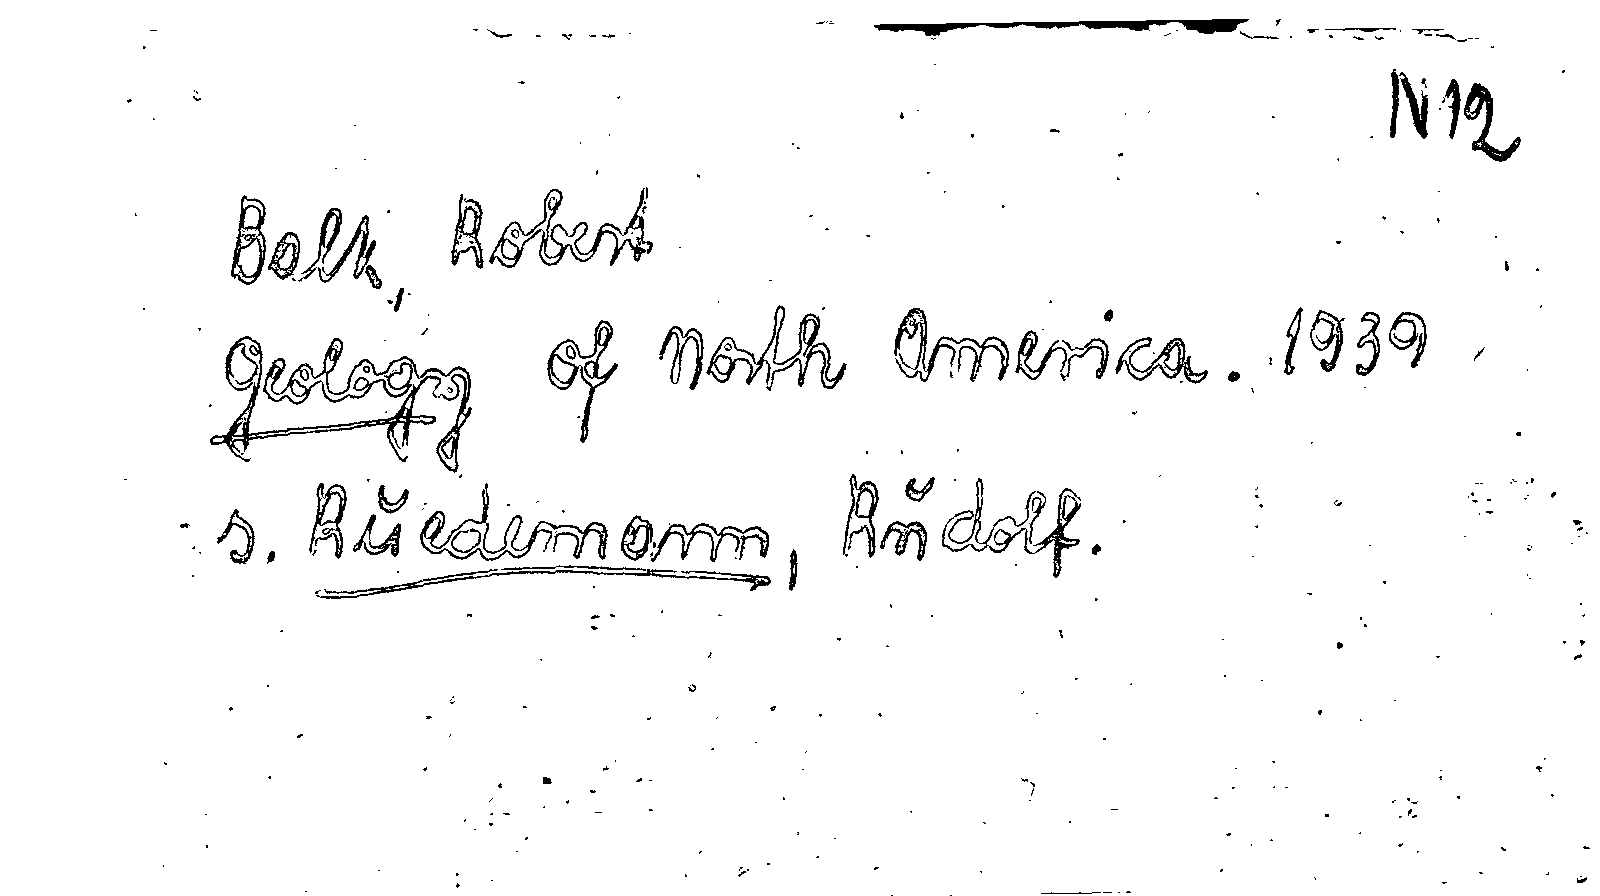 N12
Balk, Robert
Geology of North America. 1939
s. Rŭedemann, Rŭdolf.